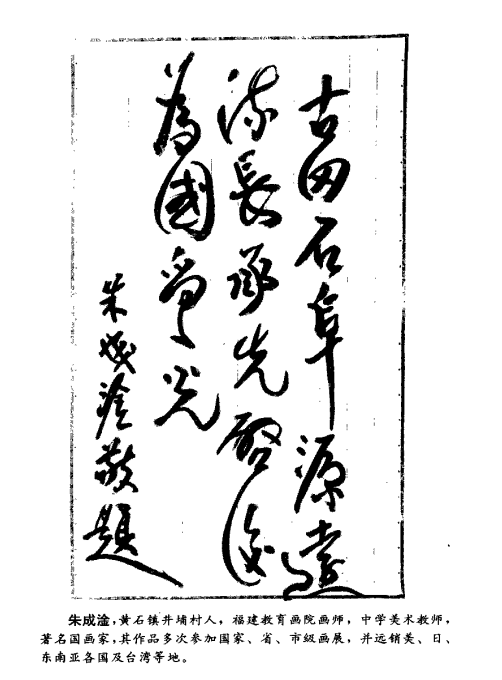 古田石阜源远
流長承先啓後
為國爭光
朱成淦敬題
朱成淦,黄石镇井埔村人,福建教育画院画师,中学美术教师,
著名国画家,其作品多次参加国家、省、市级画展,并远销美、日、
东南亚各国及台湾等地。